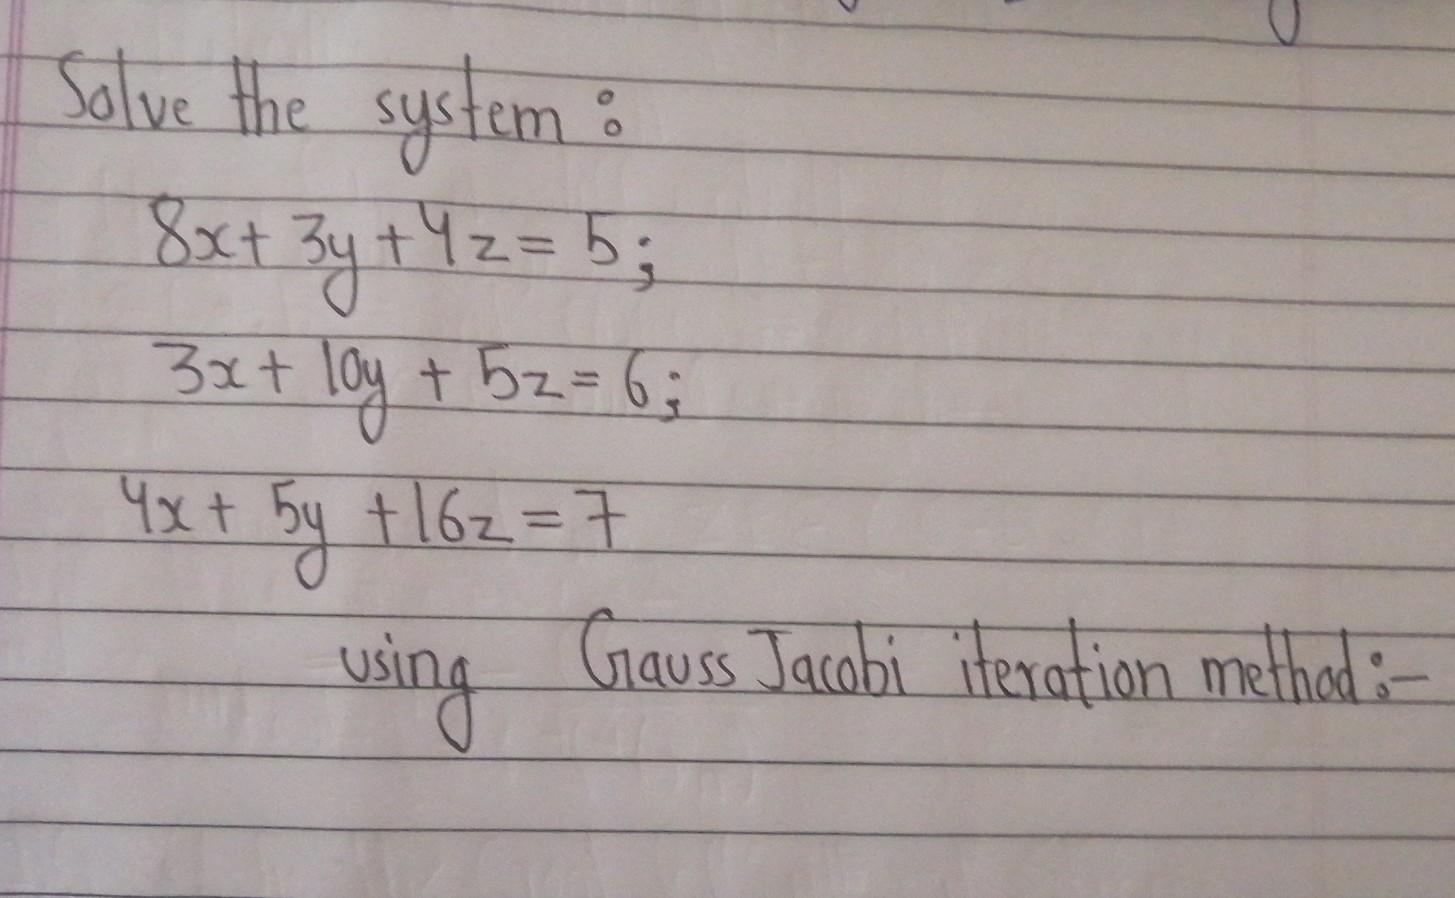 Solve the system :
8x + 3y + 4z = 5;
3x + 10y + 5z = 6;
4x + 5y + 16z = 7
using Gauss Jacobi iteration method :-